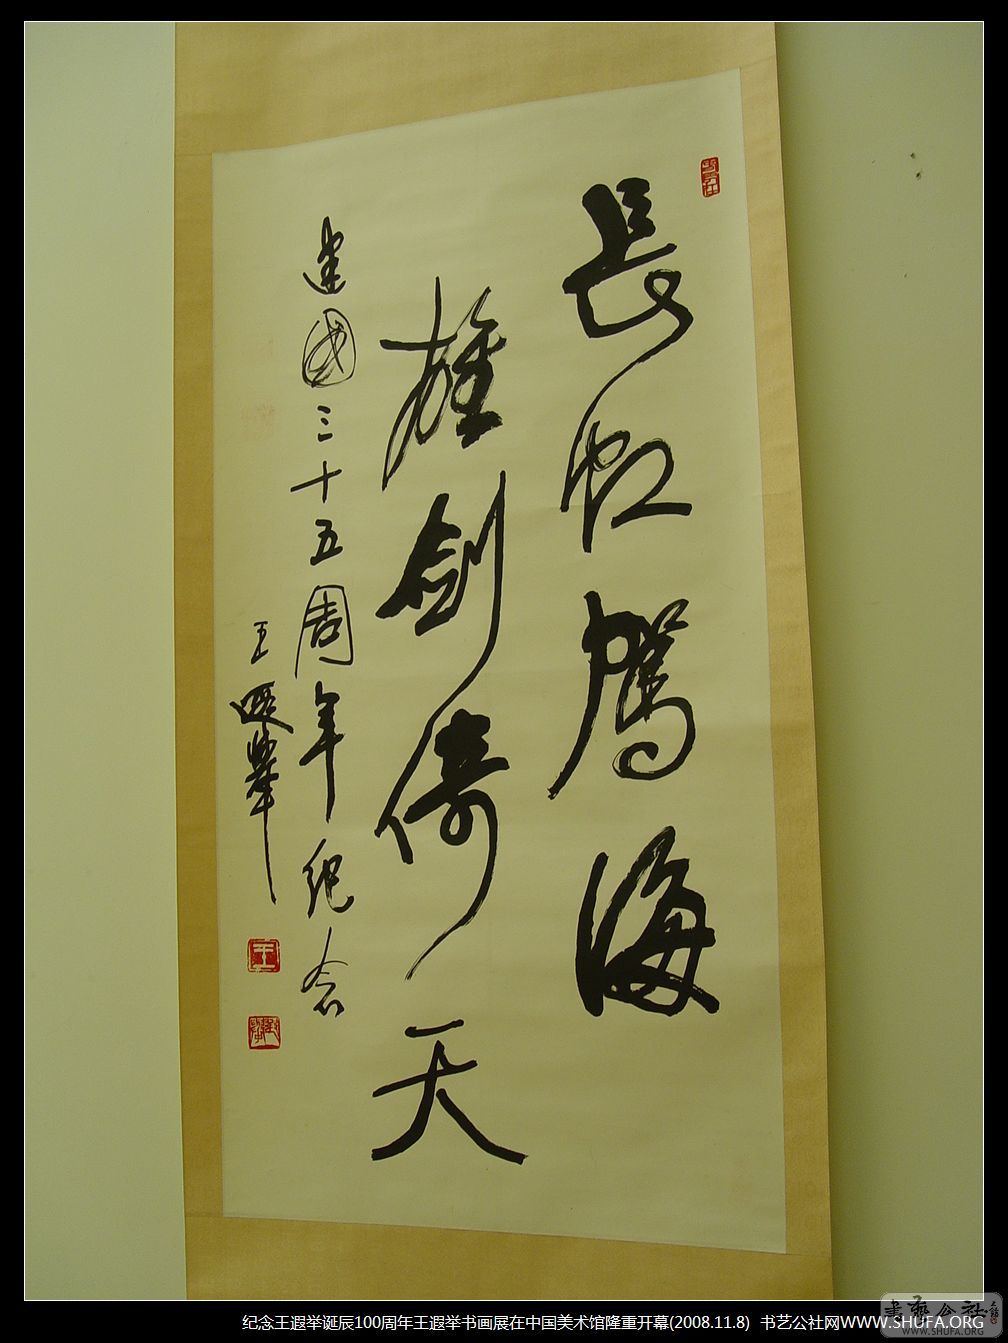 長虹駕海
雄劍倚天
建國三十五周年纪念
王遐舉
王
纪念王遐举诞辰100周年王遐举书画展在中国美术馆隆重开幕(2008.11.8) 书艺公社网WWW.SHUFA.ORG
書藝公社
WWW.SHUFA.ORG